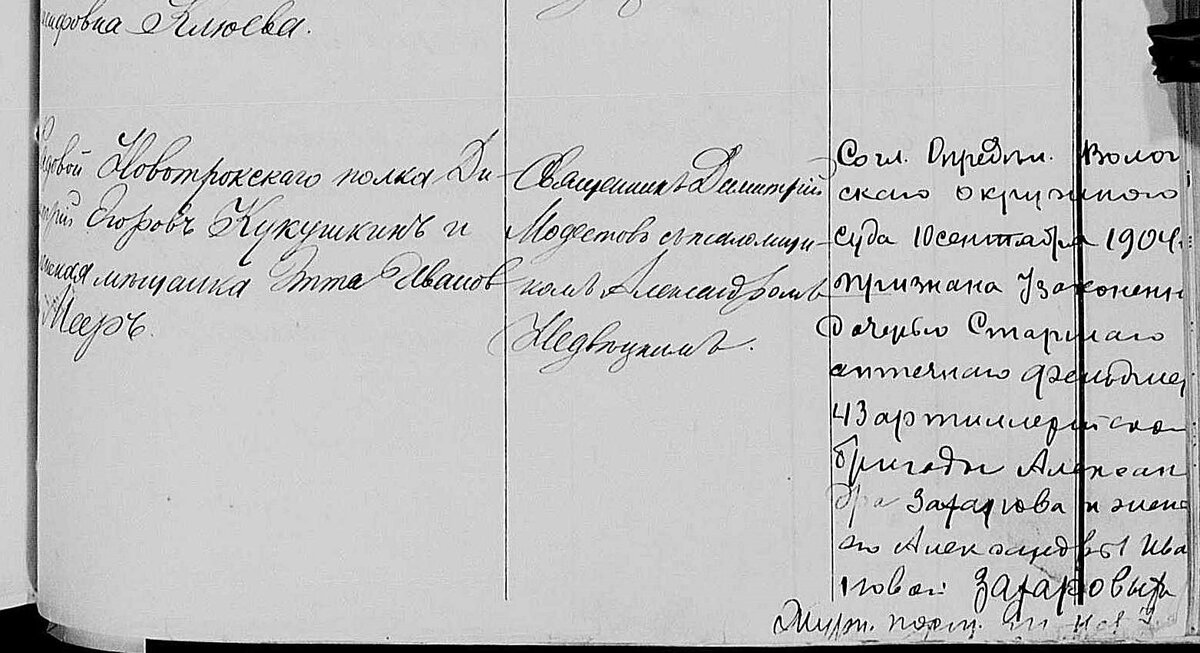 сифовна Клюева.
Рядовой Новотрокскаго полка Ди-
митрій Егоровъ Кукушкинъ и
мѣщанка Этта Иванов
Мееръ.
Священникъ Димитрій
Модестовъ съ псаломщи-
комъ Александромъ
Недвѣцкимъ.
Согл. Опредѣл. Волог
скаго окружного
суда 10 сентября 1904
признана Узаконенн
дочерью Старшаго
аптечнаго фельдшер
43 артиллерійской
бригады Алексан
дра Захарова и жены
его Александры Ива
новой Захаровых
Журн.